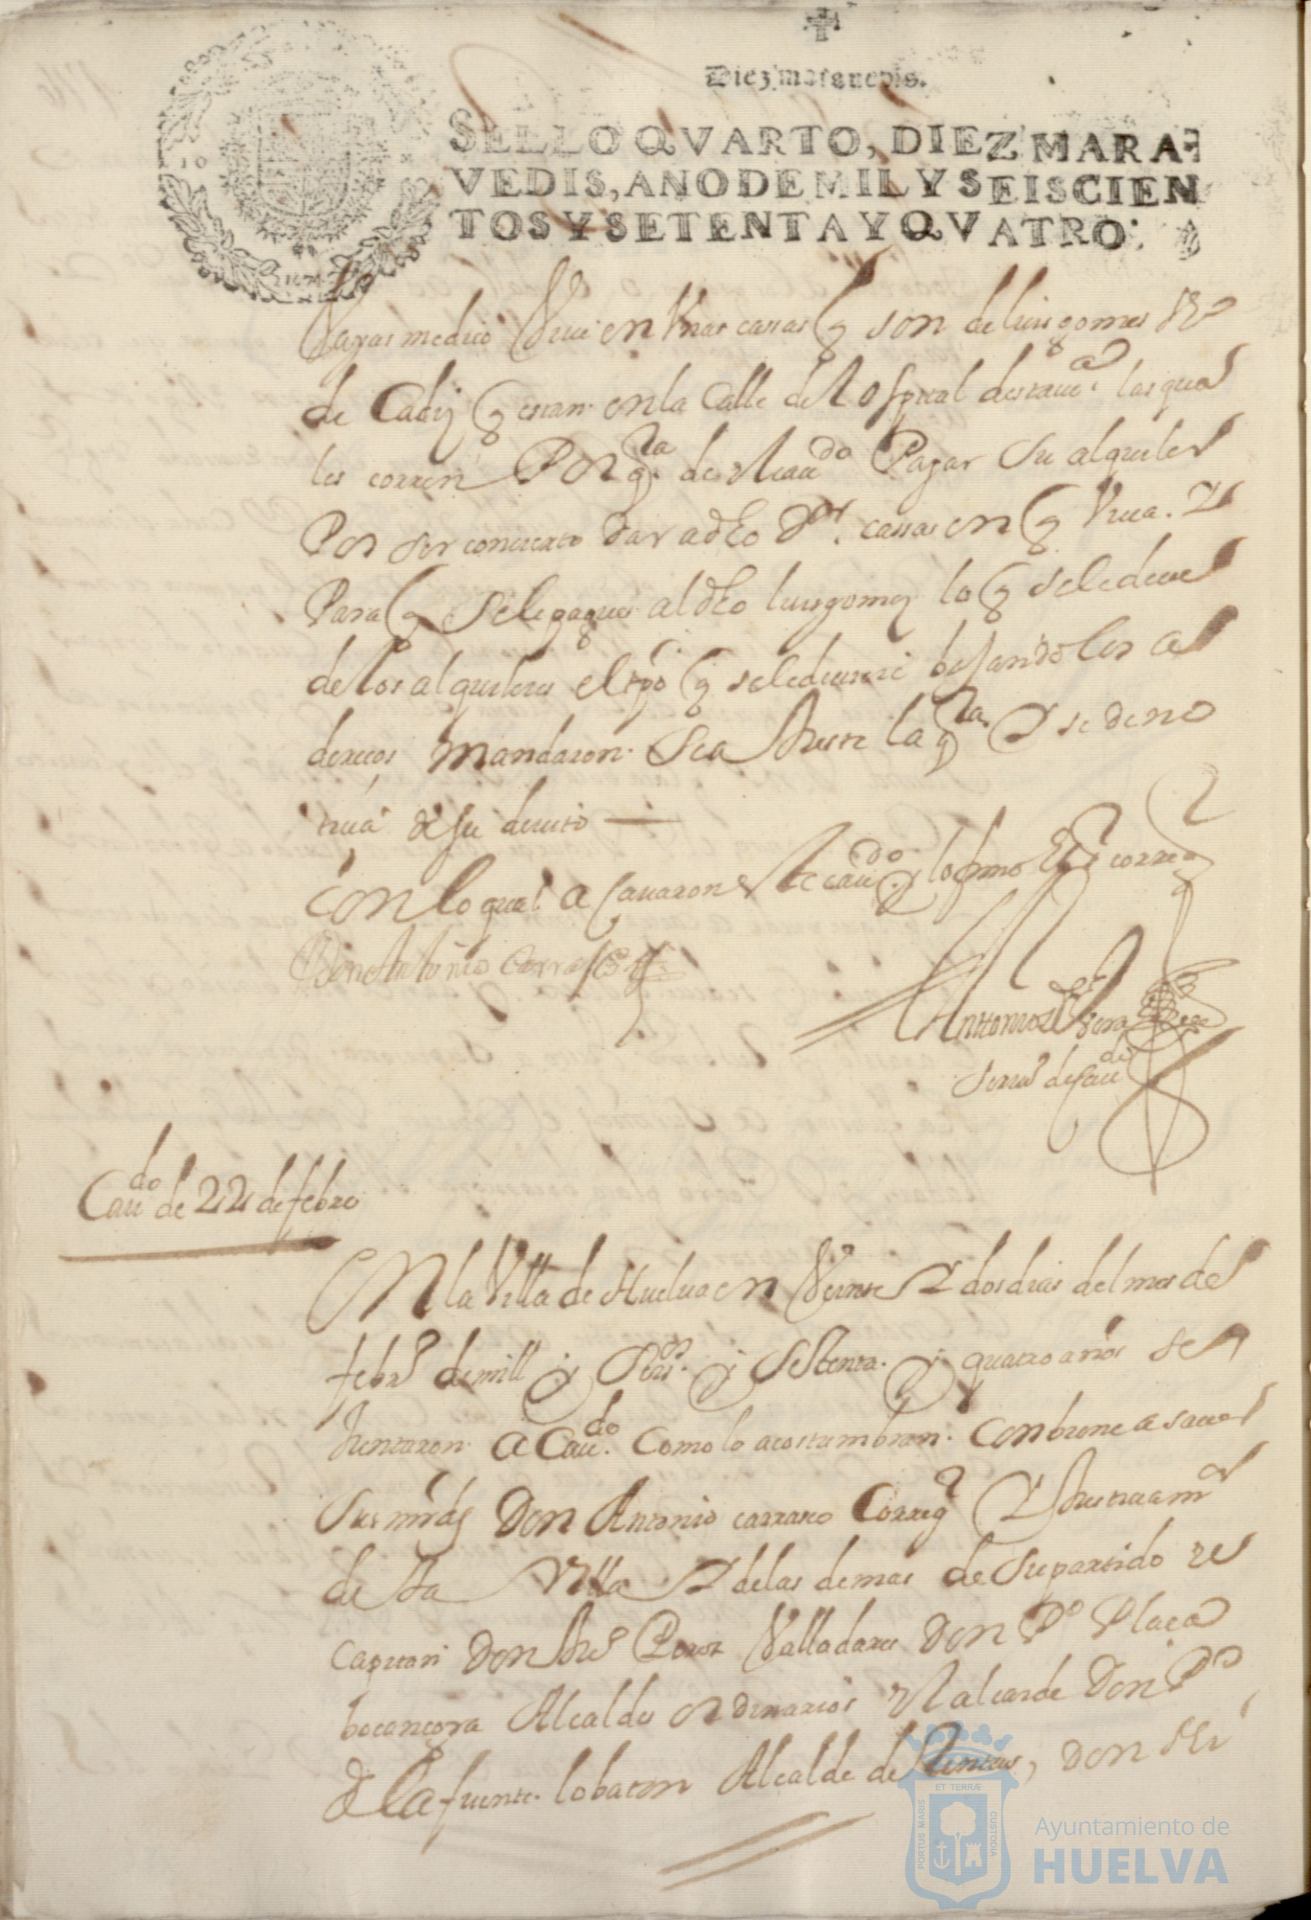 Diez marauedis.
SELLO QVARTO, DIEZ MARA-
VEDIS, AÑO DE MIL Y SEISCIEN
TOS Y SETENTA Y QVATRO.
1674
medico Viue en Vnas cassas q son de luis gomes
de Cadiz q estan en la Calle del ospital desta va las qua
les corren Por qta de caudo Pagar su alquiler
Por ser concierto dar a dho Dor cassas en q Viua. Y
Para q se le pague al dho luis gomez lo q se le deue
de los alquileres el tpo q se le deuiere bajandoles
mandaron se la qta Y se de no
ticia de su deuito
con lo qual a cauaron este caudo y lo firmo El Sr correg
Don Antonio Carrasco
Antonio de
Scriuo de Caudo
Caudo de 22 de febro
En la Villa de Huelua en Veinte Y dos dias del mes de
febro de mill y seisos y setenta y quatro años se
Juntaron a Caudo como lo acostumbran conbiene a sauer
sus mrds Don Antonio carrasco Correg Y Justicia mr
desta Villa Y de las demas de su partido
capitan Don Valladares Don Po Plaça
bocanegra Alcaldes ordinarios alcaide Don Po
de la fuente lobaton Alcalde de Don
ET TERRÆ
PORTUS MARIS
CUSTODIA
Ayuntamiento de
HUELVA